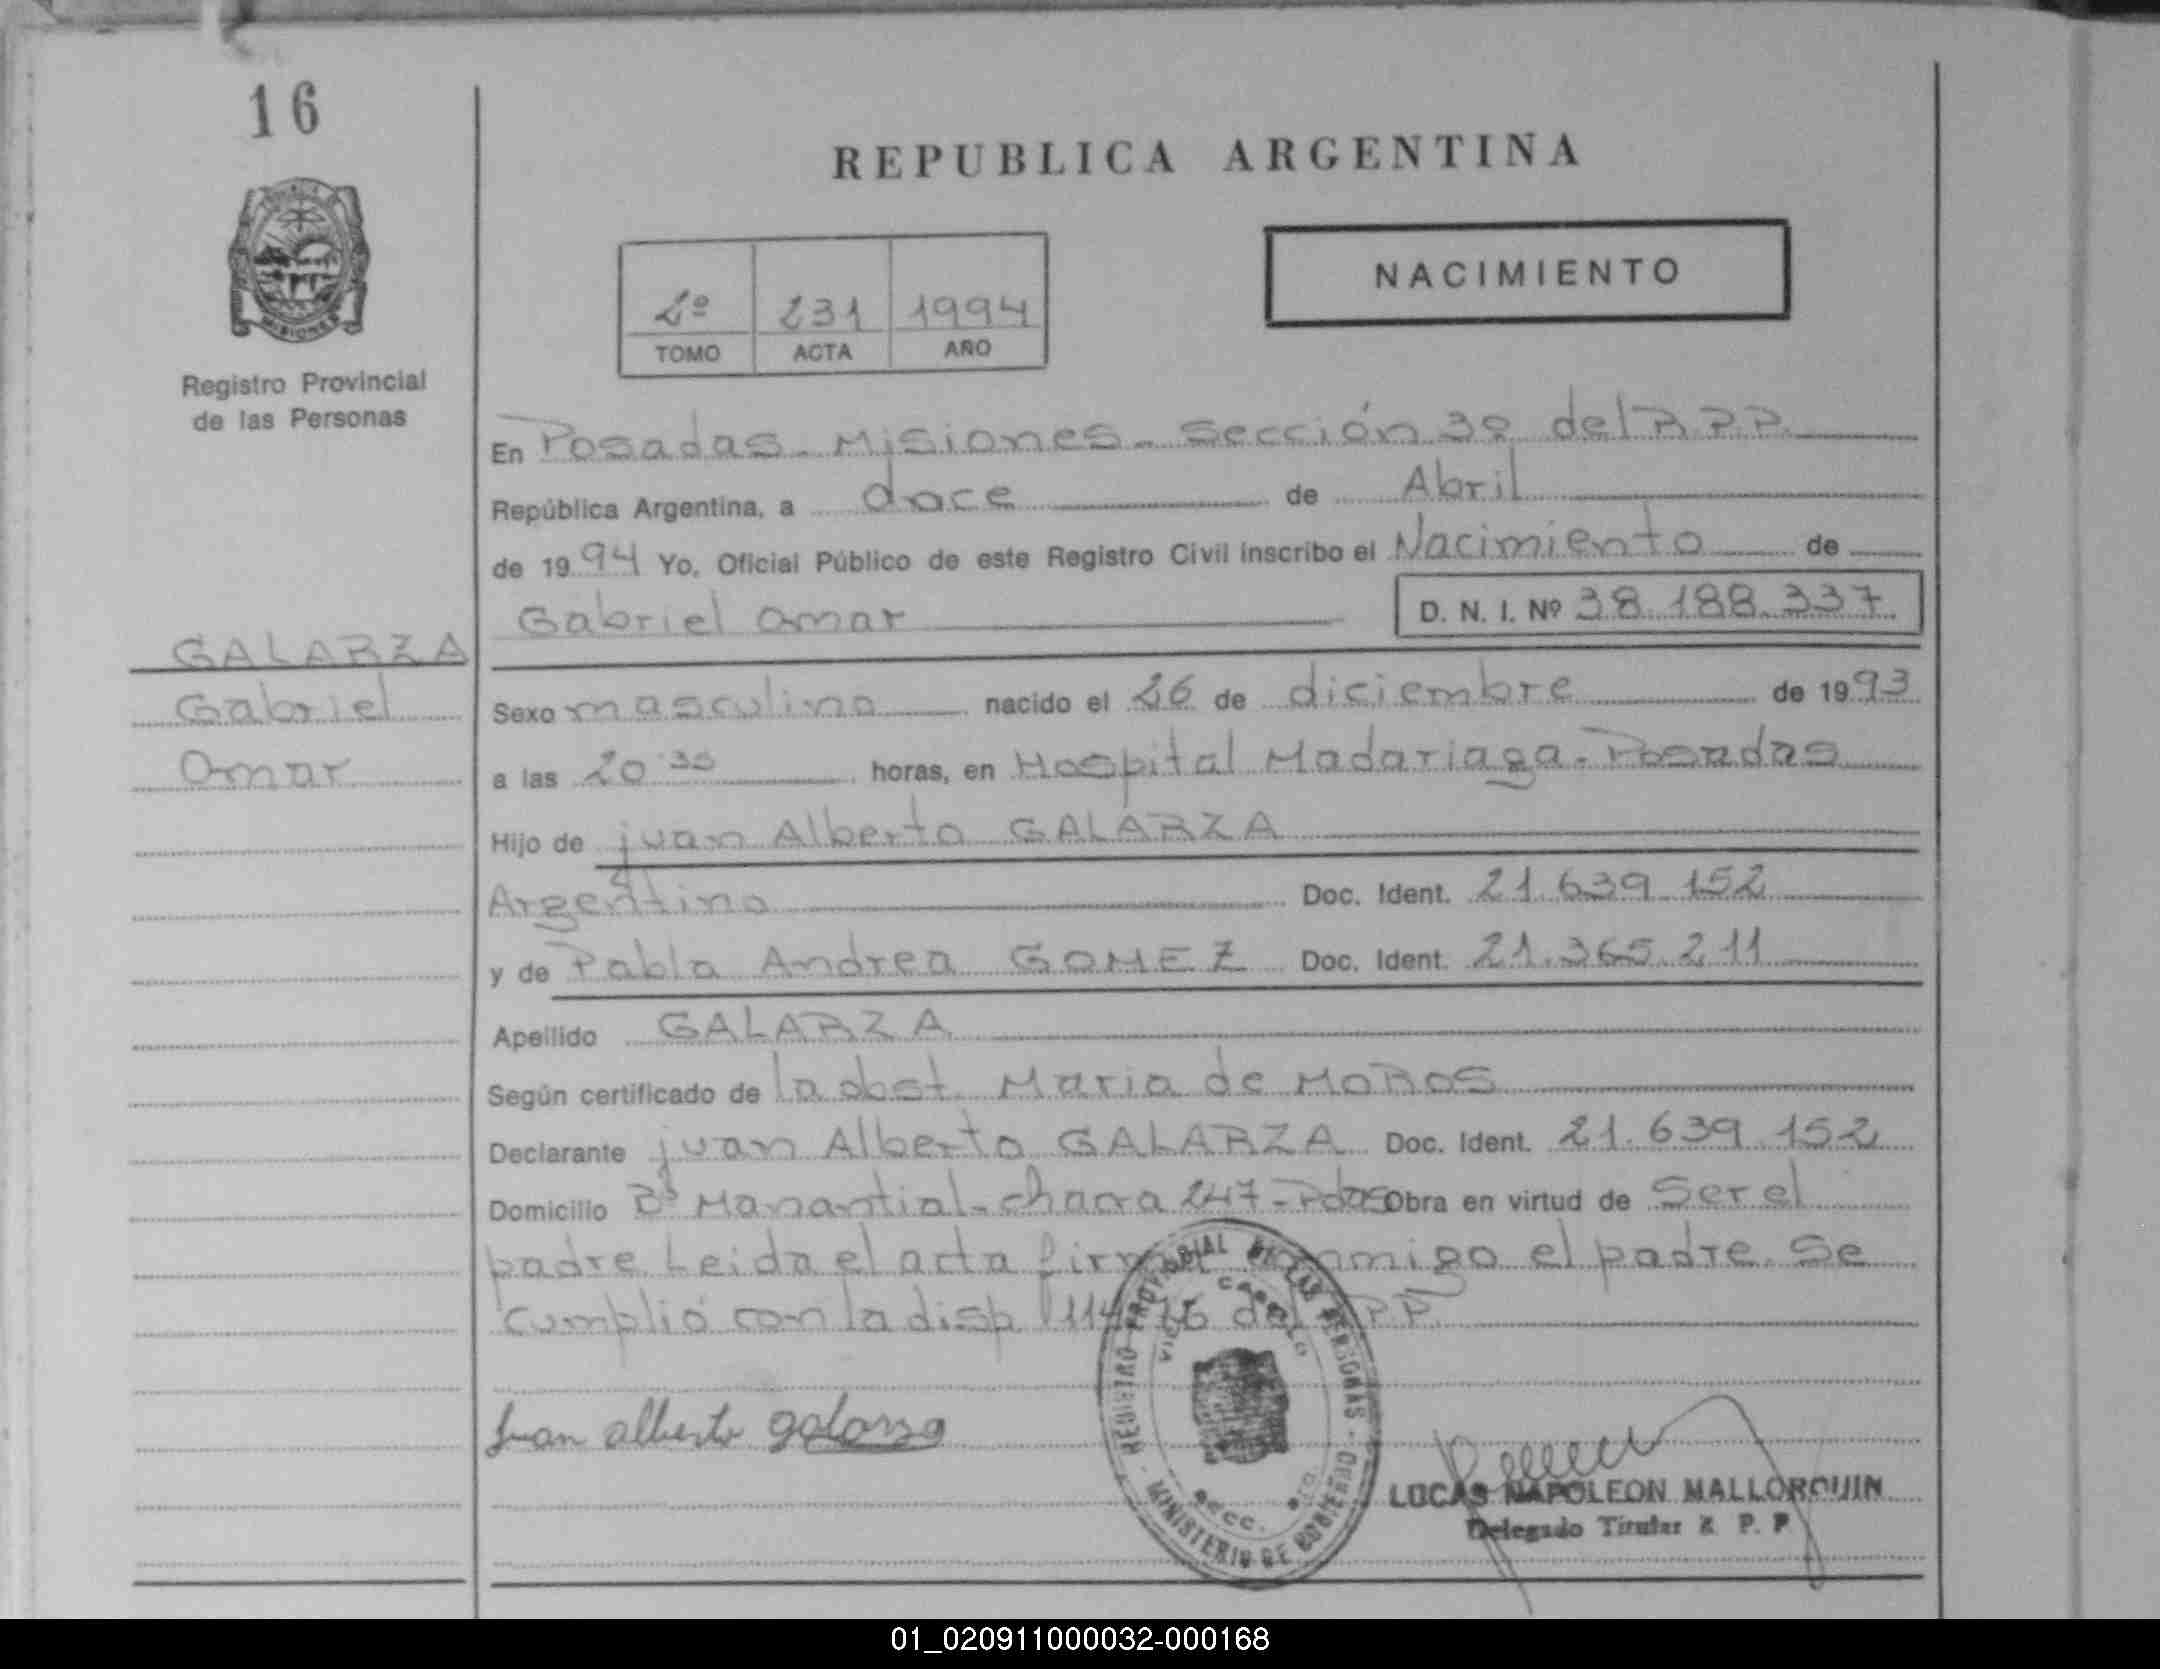 16
REPUBLICA ARGENTINA
NACIMIENTO
2º 231 1994
TOMO ACTA AÑO
MISIONES
Registro Provincial
de las Personas
En Posadas - Misiones - Sección 3º del R.P.P.
República Argentina, a doce de Abril
de 1994 Yo, Oficial Público de este Registro Civil inscribo el Nacimiento de
Gabriel Omar D. N. I. Nº 38.188.337
GALARZA
Gabriel
Omar
Sexo masculino nacido el 26 de diciembre de 1993
a las 20 horas, en Hospital Madariaga - Posadas
Hijo de juan Alberto GALARZA
Argentino Doc. Ident. 21.639.152
y de Pabla Andrea GOMEZ Doc. Ident. 21.365.211
Apellido GALARZA
Según certificado de la obst. Maria de MOROS
Declarante juan Alberto GALARZA Doc. Ident. 21.639.152
Domicilio Bº Manantial - chacra 247 - Pdas Obra en virtud de Ser el
padre Leida el acta firma conmigo el padre. Se
cumplió con la disp. del P.P.
Juan alberto galarza
REGISTRO PROVINCIAL DE LAS PERSONAS - MINISTERIO DE GOBIERNO -
LUCAS NAPOLEON MALLORQUIN
Delegado Titular R. P. P.
01_020911000032-000168